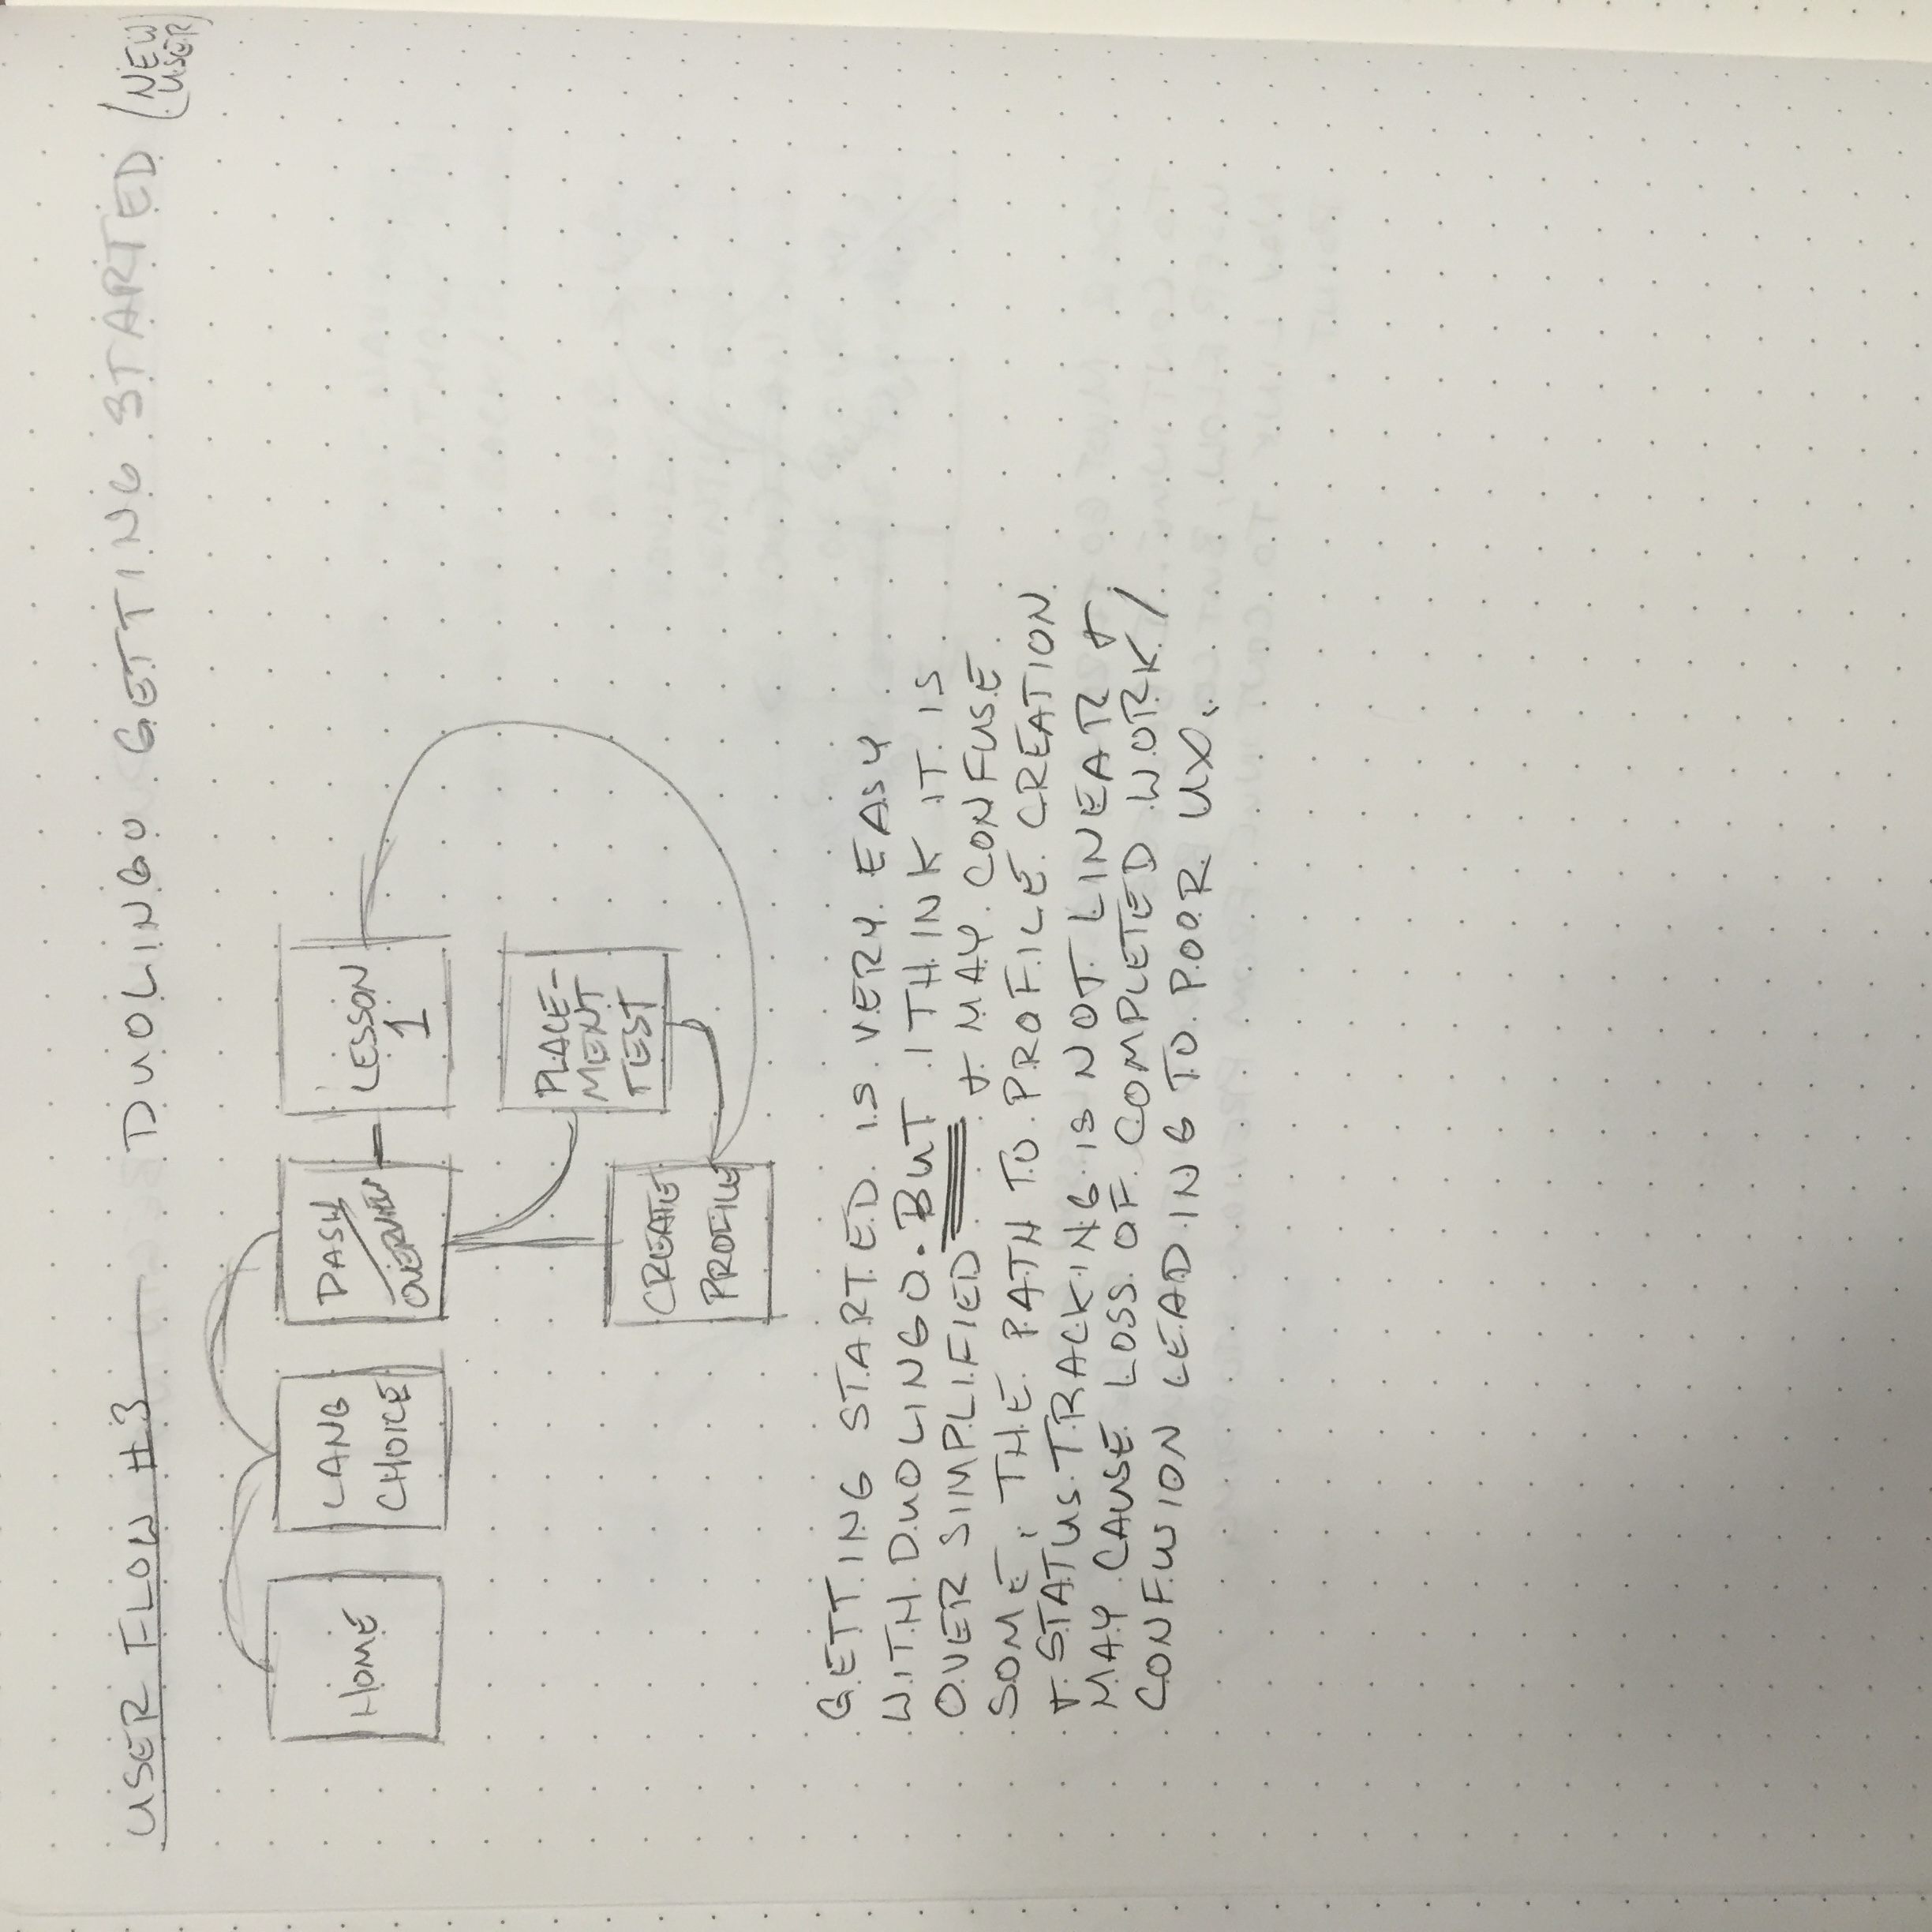 USER FLOW #3 DUOLINGO GETTING STARTED (NEW
USER)
HOME
LANG
CHOICE
DASH/
OVERVIEW
LESSON
1
PLACE-
MENT
TEST
CREATE
PROFILE
GETTING STARTED IS VERY EASY
WITH DUOLINGO. BUT I THINK IT IS
OVER SIMPLIFIED & MAY CONFUSE
SOME. THE PATH TO PROFILE CREATION
& STATUS TRACKING IS NOT LINEAR &
MAY CAUSE LOSS OF COMPLETED WORK/
CONFUSION LEADING TO POOR UX.